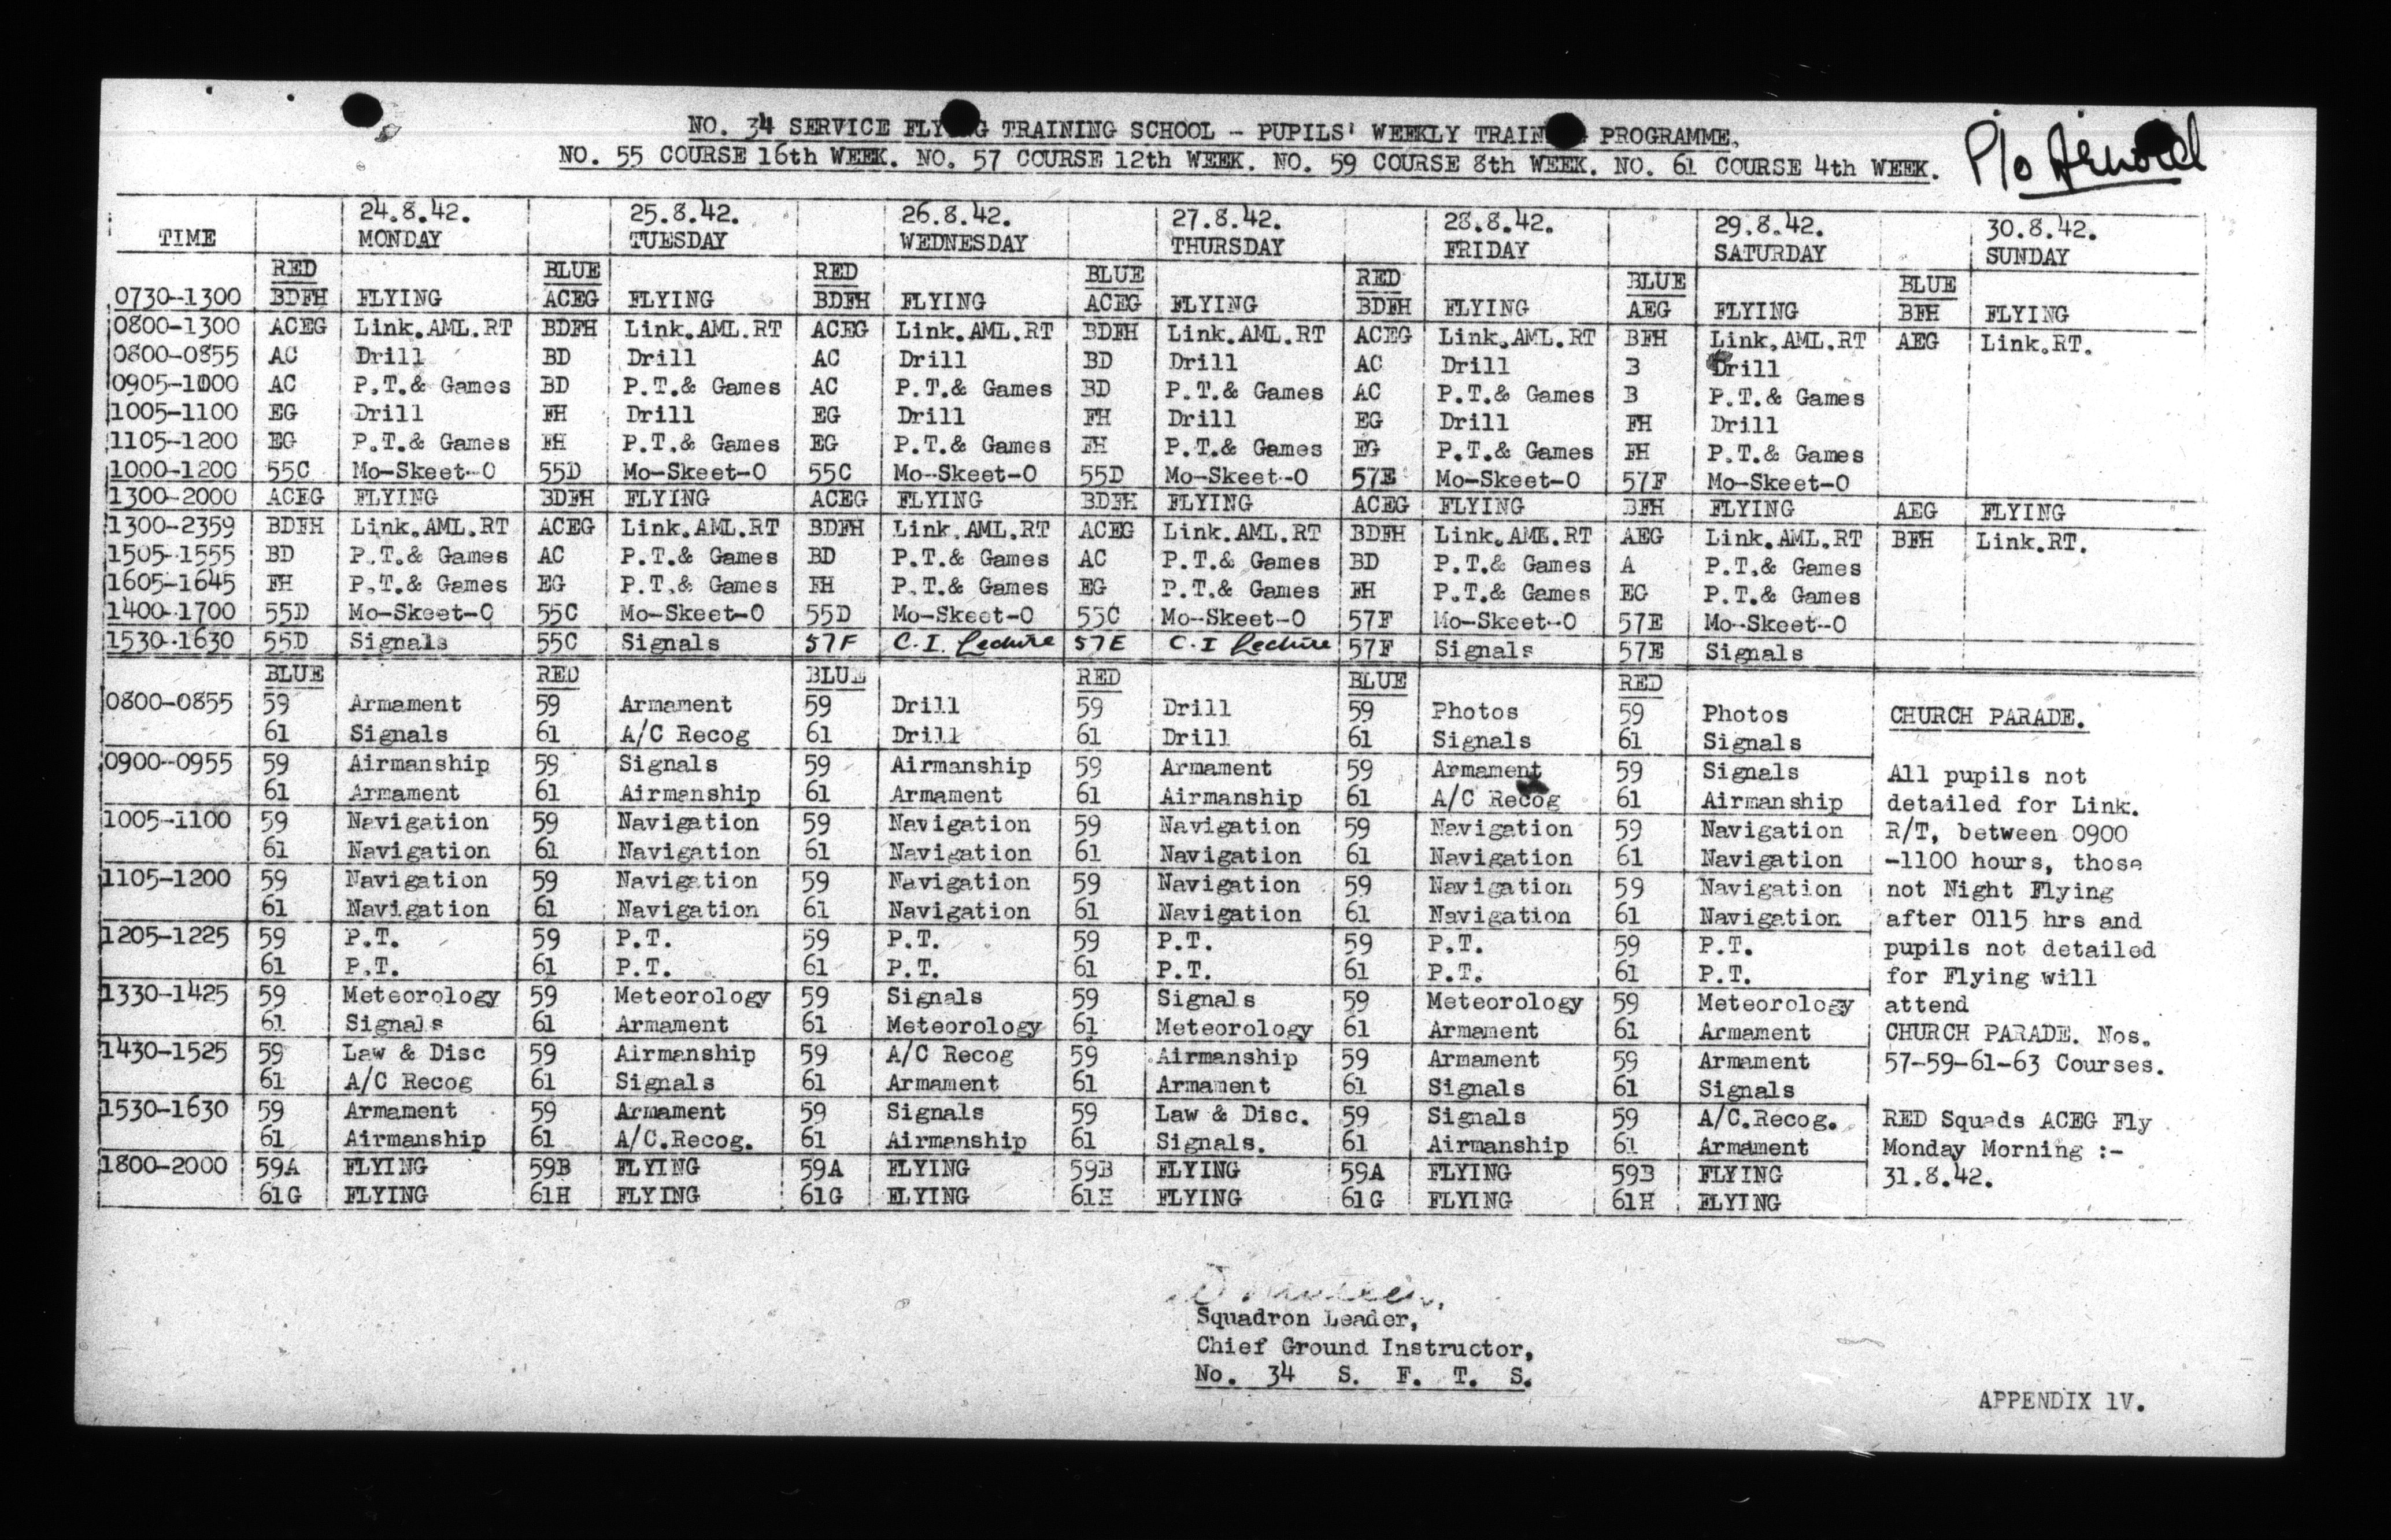 NO. 34 SERVICE FLYING TRAINING SCHOOL - PUPILS' WEEKLY TRAIN PROGRAMME.
NO. 55 COURSE 16th WEEK. NO. 57 COURSE 12th WEEK. NO. 59 COURSE 8th WEEK. NO. 61 COURSE 4th WEEK.
P/o Arnold
24.8.42. 25.8.42. 26.8.42. 27.8.42. 28.8.42. 29.8.42. 30.8.42.
TIME MONDAY TUESDAY WEDNESDAY THURSDAY FRIDAY SATURDAY SUNDAY
RED BLUE RED BLUE RED BLUE BLUE
0730-1300 BDFH FLYING ACEG FLYING BDFH FLYING ACEG FLYING BDFH FLYING AEG FLYING BFH FLYING
0800-1300 ACEG Link.AML.RT BDFH Link.AML.RT ACEG Link.AML.RT BDFH Link.AML.RT ACEG Link.AML.RT BFH Link.AML.RT AEG Link.RT.
0800-0855 AC Drill BD Drill AC Drill BD Drill AC Drill B Drill
0905-1000 AC P.T.& Games BD P.T.& Games AC P.T.& Games BD P.T.& Games AC P.T.& Games B P.T.& Games
1005-1100 EG Drill FH Drill EG Drill FH Drill EG Drill FH Drill
1105-1200 EG P.T.& Games FH P.T.& Games EG P.T.& Games FH P.T.& Games EG P.T.& Games FH P.T.& Games
1000-1200 55C Mo-Skeet-O 55D Mo-Skeet-O 55C Mo-Skeet-O 55D Mo-Skeet-O 57E Mo-Skeet-O 57F Mo-Skeet-O
1300-2000 ACEG FLYING BDFH FLYING ACEG FLYING BDFH FLYING ACEG FLYING BFH FLYING AEG FLYING
1300-2359 BDFH Link.AML.RT ACEG Link.AML.RT BDFH Link.AML.RT ACEG Link.AML.RT BDFH Link.AML.RT AEG Link.AML.RT BFH Link.RT.
1505-1555 BD P.T.& Games AC P.T.& Games BD P.T.& Games AC P.T.& Games BD P.T.& Games A P.T.& Games
1605-1645 FH P.T.& Games EG P.T.& Games FH P.T.& Games EG P.T.& Games FH P.T.& Games EG P.T.& Games
1400-1700 55D Mo-Skeet-O 55C Mo-Skeet-O 55D Mo-Skeet-O 55C Mo-Skeet-O 57F Mo-Skeet-O 57E Mo-Skeet-O
1530-1630 55D Signals 55C Signals 57F C.I. Lecture 57E C.I Lecture 57F Signals 57E Signals
BLUE RED BLUE RED BLUE RED
0800-0855 59 Armament 59 Armament 59 Drill 59 Drill 59 Photos 59 Photos
61 Signals 61 A/C Recog 61 Drill 61 Drill 61 Signals 61 Signals
0900-0955 59 Airmanship 59 Signals 59 Airmanship 59 Armament 59 Armament 59 Signals
61 Armament 61 Airmanship 61 Armament 61 Airmanship 61 A/C Recog 61 Airmanship
1005-1100 59 Navigation 59 Navigation 59 Navigation 59 Navigation 59 Navigation 59 Navigation
61 Navigation 61 Navigation 61 Navigation 61 Navigation 61 Navigation 61 Navigation
1105-1200 59 Navigation 59 Navigation 59 Navigation 59 Navigation 59 Navigation 59 Navigation
61 Navigation 61 Navigation 61 Navigation 61 Navigation 61 Navigation 61 Navigation
1205-1225 59 P.T. 59 P.T. 59 P.T. 59 P.T. 59 P.T. 59 P.T.
61 P.T. 61 P.T. 61 P.T. 61 P.T. 61 P.T. 61 P.T.
1330-1425 59 Meteorology 59 Meteorology 59 Signals 59 Signals 59 Meteorology 59 Meteorology
61 Signals 61 Armament 61 Meteorology 61 Meteorology 61 Armament 61 Armament
1430-1525 59 Law & Disc 59 Airmanship 59 A/C Recog 59 Airmanship 59 Armament 59 Armament
61 A/C Recog 61 Signals 61 Armament 61 Armament 61 Signals 61 Signals
1530-1630 59 Armament 59 Armament 59 Signals 59 Law & Disc. 59 Signals 59 A/C.Recog.
61 Airmanship 61 A/C.Recog. 61 Airmanship 61 Signals. 61 Airmanship 61 Armament
1800-2000 59A FLYING 59B FLYING 59A FLYING 59B FLYING 59A FLYING 59B FLYING
61G FLYING 61H FLYING 61G FLYING 61H FLYING 61G FLYING 61H FLYING
CHURCH PARADE.
All pupils not
detailed for Link.
R/T, between 0900
-1100 hours, those
not Night Flying
after 0115 hrs and
pupils not detailed
for Flying will
attend
CHURCH PARADE. Nos.
57-59-61-63 Courses.
RED Squads ACEG Fly
Monday Morning :-
31.8.42.
Squadron Leader,
Chief Ground Instructor,
No. 34 S. F. T. S.
APPENDIX 1V.